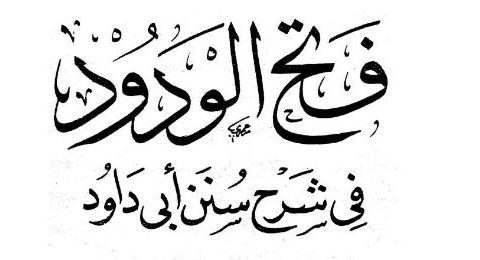 فَتح الوَدُود
فِي شَرْح سُنَن أبي دَاوُد